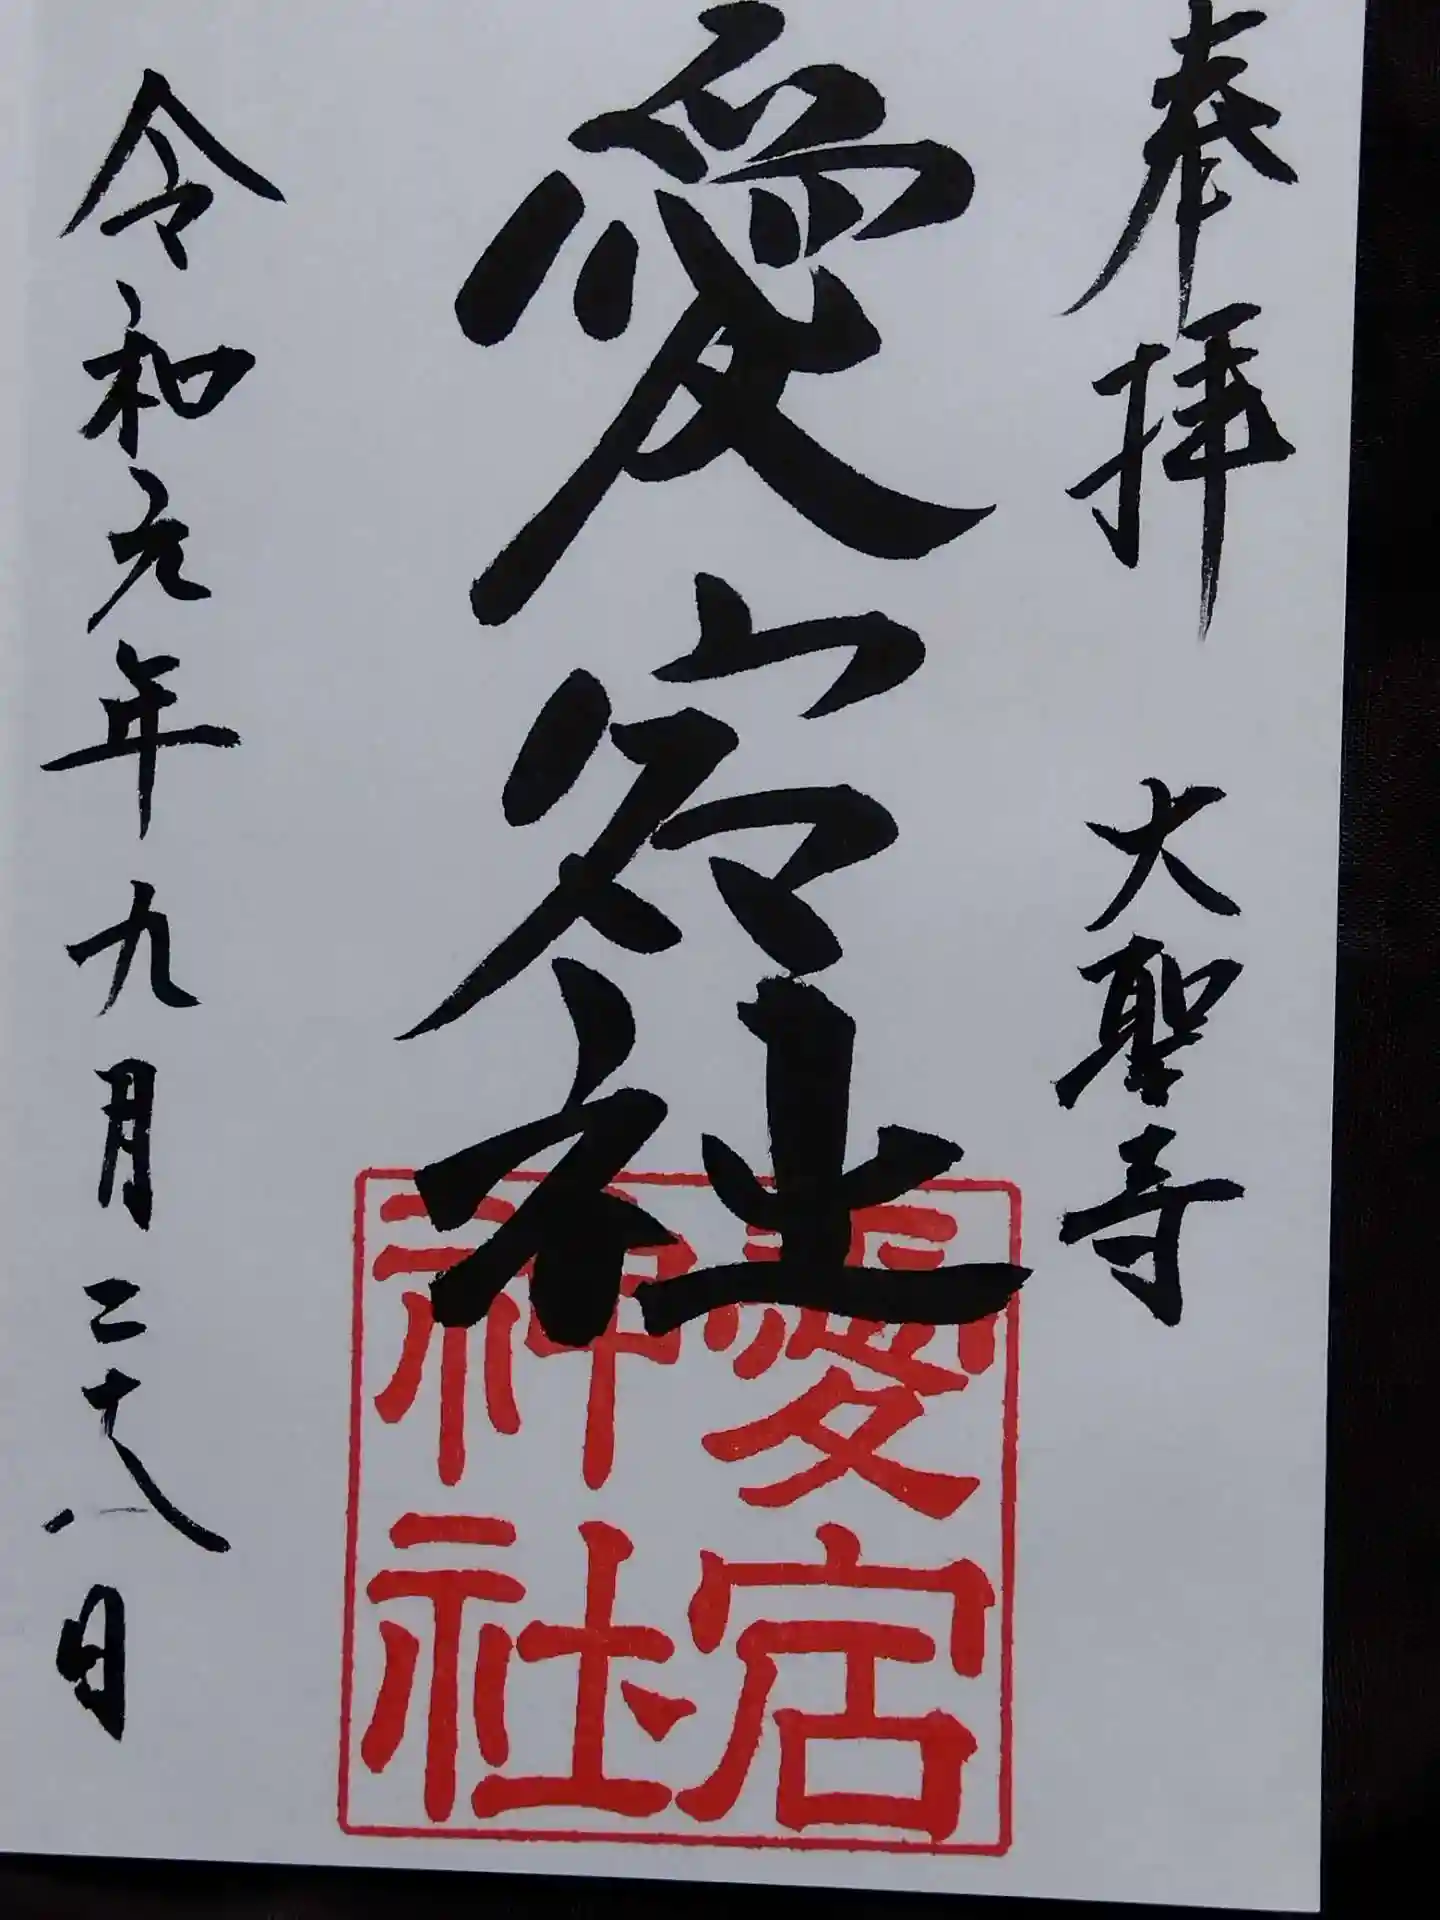 奉拝　大聖寺
愛宕社
愛宕
神社
令和元年九月二十八日